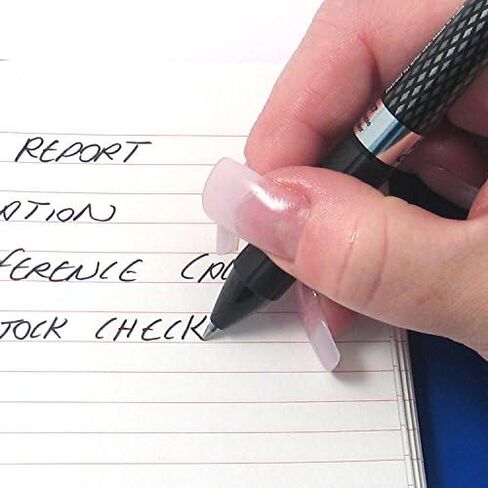 REPORT
ATION
FERENCE CAL
TOCK CHECK